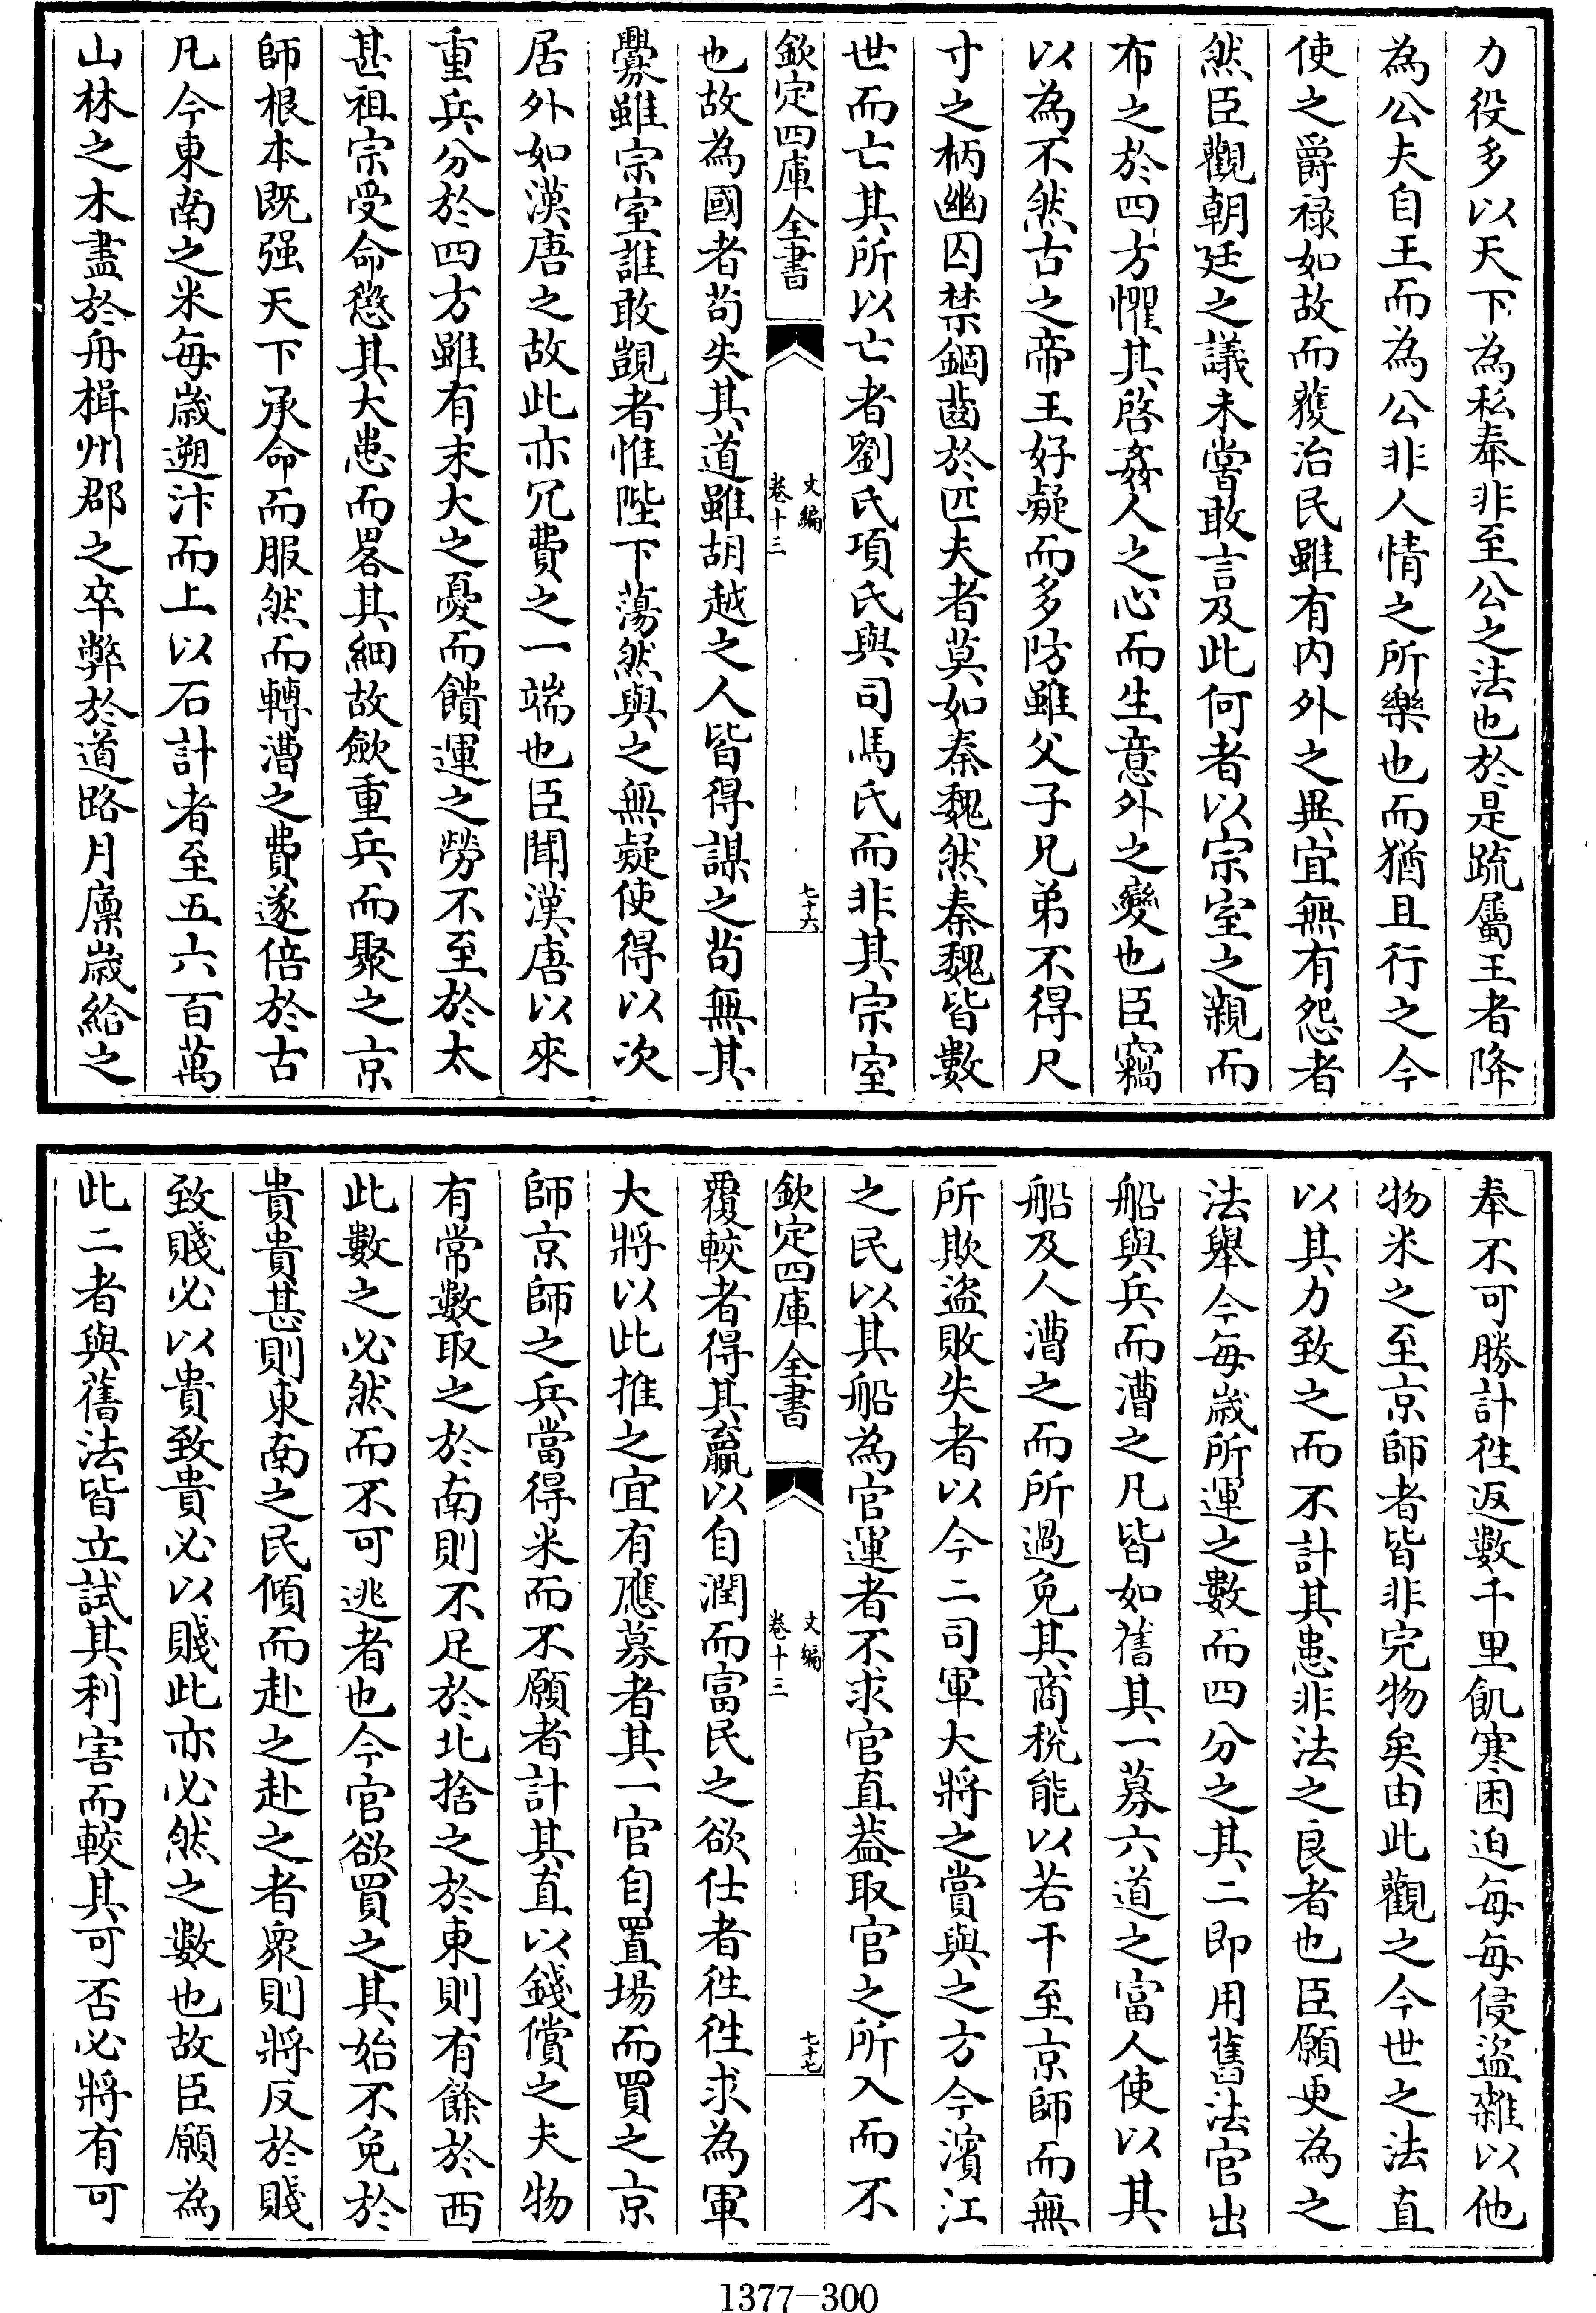 力役多以天下為私奉非至公之法也於是疏屬王者降
為公夫自王而為公非人情之所樂也而猶且行之今
使之爵禄如故而獲治民雖有内外之異宜無有怨者
然臣觀朝廷之議未嘗敢言及此何者以宗室之親而
布之於四方懼其啓姦人之心而生意外之變也臣竊
以為不然古之帝王好疑而多防雖父子兄弟不得尺
寸之柄幽囚禁錮齒於匹夫者莫如秦魏然秦魏皆數
世而亡其所以亡者劉氏項氏與司馬氏而非其宗室
欽定四庫全書
文編
卷十三
七十六
也故為國者苟失其道雖胡越之人皆得謀之苟無其
釁雖宗室誰敢覬者惟陛下蕩然與之無疑使得以次
居外如漢唐之故此亦冗費之一端也臣聞漢唐以來
重兵分於四方雖有末大之憂而饋運之勞不至於太
甚祖宗受命懲其大患而畧其細故歛重兵而聚之京
師根本既强天下承命而服然而轉漕之費遂倍於古
凡今東南之米每歲遡汴而上以石計者至五六百萬
山林之木盡於舟楫州郡之卒弊於道路月廪歲給之
奉不可勝計徃返數千里飢寒困迫每每侵盜雜以他
物米之至京師者皆非完物矣由此觀之今世之法直
以其力致之而不計其患非法之良者也臣願更為之
法舉今每歲所運之數而四分之其二即用舊法官出
船與兵而漕之凡皆如舊其一募六道之富人使以其
船及人漕之而所過免其商稅能以若干至京師而無
所欺盜敗失者以今二司軍大將之賞與之方今濱江
之民以其船為官運者不求官直葢取官之所入而不
欽定四庫全書
文編
卷十三
七十七
覆較者得其贏以自潤而富民之欲仕者徃徃求為軍
大將以此推之宜有應募者其一官自置場而買之京
師京師之兵當得米而不願者計其直以錢償之夫物
有常數取之於南則不足於北捨之於東則有餘於西
此數之必然而不可逃者也今官欲買之其始不免於
貴貴甚則東南之民傾而赴之赴之者衆則將反於賤
致賤必以貴致貴必以賤此亦必然之數也故臣願為
此二者與舊法皆立試其利害而較其可否必將有可
1377-300